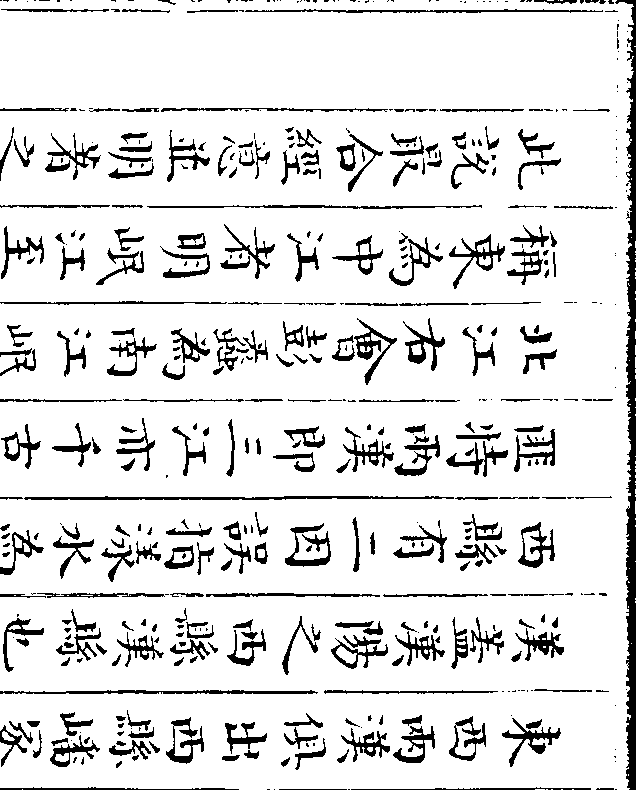 東西兩漢俱出西縣嶓冢
漢蓋漢陽之西縣漢縣也
西縣有二因誤指漾水為
匪特兩漢即三江亦千古
北江右會彭蠡為南江岷
稱東為中江者明岷江至
此說最合經意並明者之